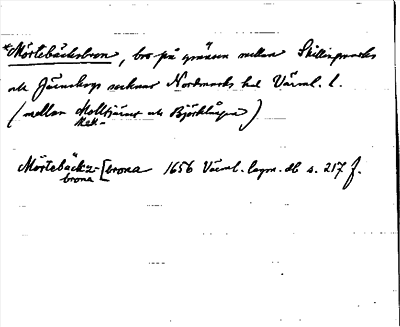 *Mörtebäcksbron, bro på gränsen mellan Skillingmarks
och Järnskogs socknar Nordmarks hd Värml. l.
(mellan Molltjärnet och Björklången)
Mörtebäckz-[brona 1656 Värml. lagm. db s. 217 f.
brona